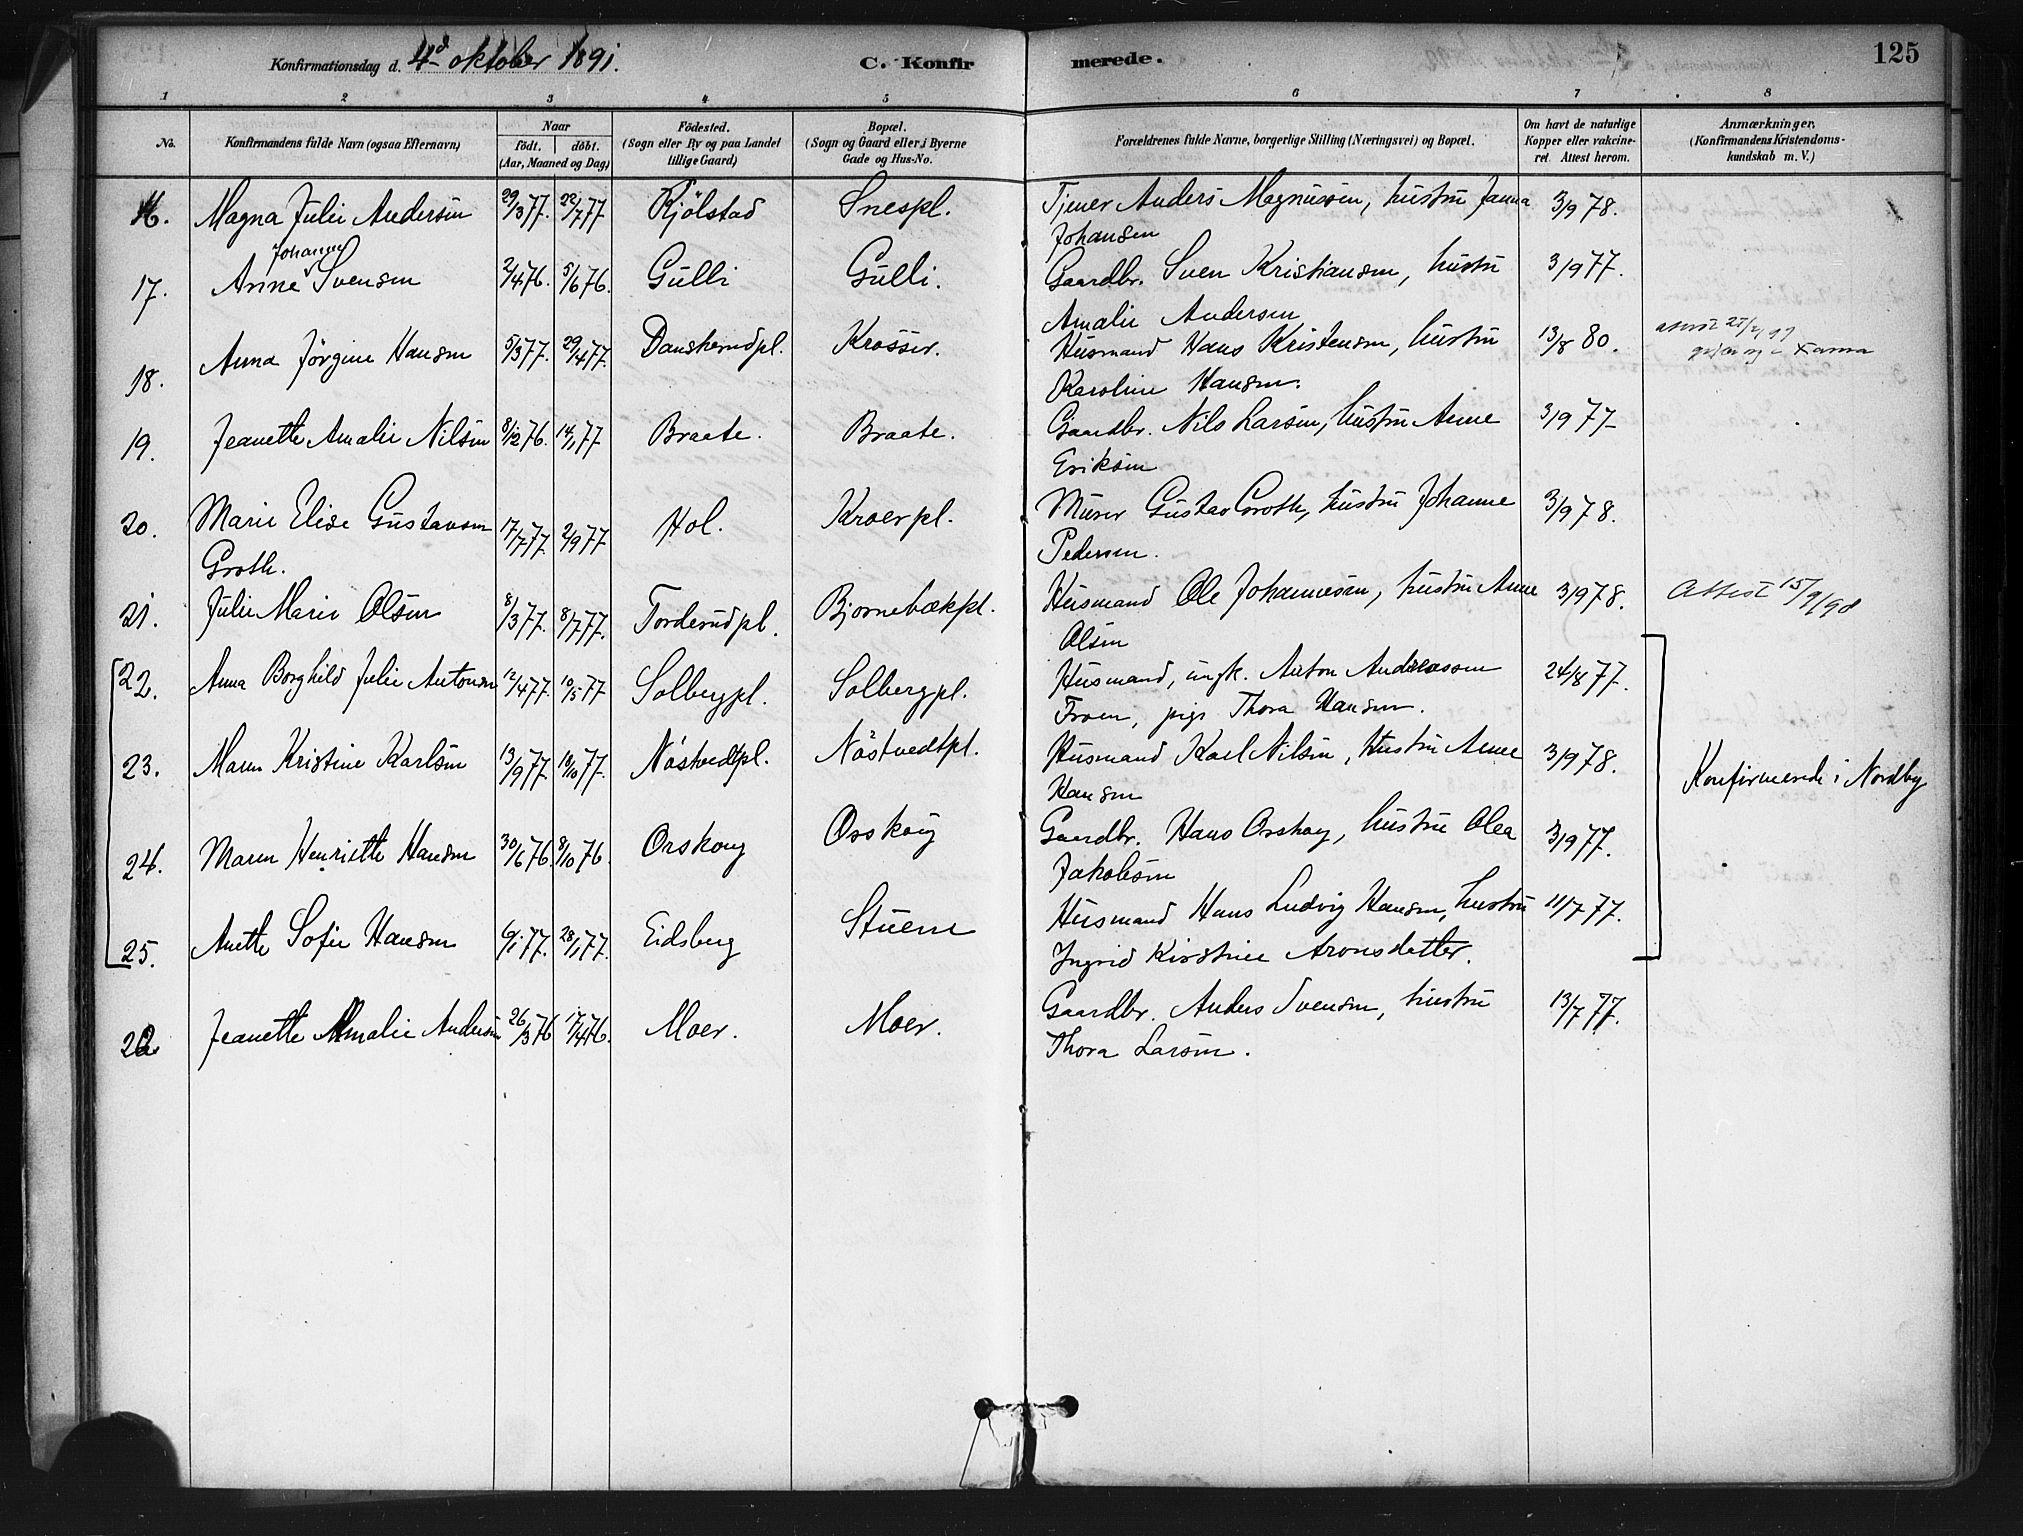 Konfirmationsdag d. 4d oktober 1891. C. Konfirmerede. 125
1 2 3 4 5 6 7 8
No. Konfirmandens fulde Navn (ogsaa Efternavn) Naar født. døbt. (Aar, Maaned og Dag) Födested. (Sogn eller By og paa Landet tillige Gaard) Bopæl. (Sogn og Gaard eller i Byerne Gade og Hus-No. Forældrenes fulde Navne, borgerlige Stilling (Næringsvei) og Bopæl. Om havt de naturlige Kopper eller vakcineret. Attest herom. Anmærkninger, (Konfirmandens Kristendomskundskab m. V.)
16. Magna Julie Andersen 29/3 77. 22/7 77 Kjölstad Snespl. Tjener Anders Magnussen, hustru Janna Johansen 3/9 78.
17. Anne Johanne Svensen 2/4 76. 5/6 76. Gulli Gulli. Gaardbr. Sven Kristiansen, hustru Amalie Andersen 3/9 77.
18. Anna Jörgine Hansen 5/3 77. 29/4 77. Danskerudpl. Krosser. Husmand Hans Kristensen, hustru Karoline Hansen. 13/8 80.
19. Jeanette Amalie Nilsen 8/12 76. 14/1 77 Braate. Braate. Gaardbr. Nils Larsen, hustru Anne Eriksen 3/9 77
20. Marie Elise Gustavsen Groth. 17/7 77. 2/9 77 Hol. Kroerpl. Murer Gustav Groth, hustru Johanne Pedersen. 3/9 78.
21. Julie Marie Olsen 8/3 77. 8/7 77. Torderudpl. Bjornebækpl. Husmand Ole Johannesen, hustru Anne Olsen 3/9 78. Attest 15/9/98
22. Anna Borghild Julie Antonsen 12/4 77. 10/5 77 Solbergpl. Solbergpl. Husmand, ungk. Anton Andreassen Froen, pige Thora Hansen. 24/8 77.
23. Maren Kristine Karlsen 13/9 77. 18/10 77. Nöstvedtpl. Nöstvedtpl. Husmand Karl Nilsen, Hustru Anne Hansen 3/9 78. Konfirmerede i Nordby
24. Maren Henriette Hansen 30/6 76. 8/10 76. Orskoug Orskoug Gaardbr. Hans Orskoug, hustru Olea Jakobsen 3/9 77.
25. Anette Sofie Hansen 6/1 77. 28/1 77. Eidsberg Stuene Husmand Hans Ludvig Hansen, hustru Ingrid Kirstine Aronsdatter. 11/7 77.
26 Jeanette Amalie Andersen 26/3 76 17/4 76. Moer. Moer. Gaardbr. Anders Svensen, hustru Thora Larsen. 13/7 77.